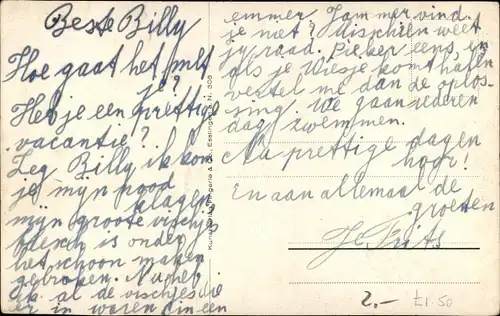 Beste Billy
Hoe gaat het met
je?
Heb je een prettige
vacantie?
Zeg Billy ik kom
je mijn nood
klagen
mijn groote vischjes
is onder
het schoon maken
gebroken. Nu heb
ik al de vischjes die
er in waren in een
emmer Jammer vind
je niet? Mischien weet
jy raad. Pieker eens, en
als je Wiesje komt halen
vertel me dan de oplos-
sing. We gaan iederen
dag zwemmen.
Nu prettige dagen
hoor!
En aan allemaal de
groeten
Je Frits
2.- £1.50